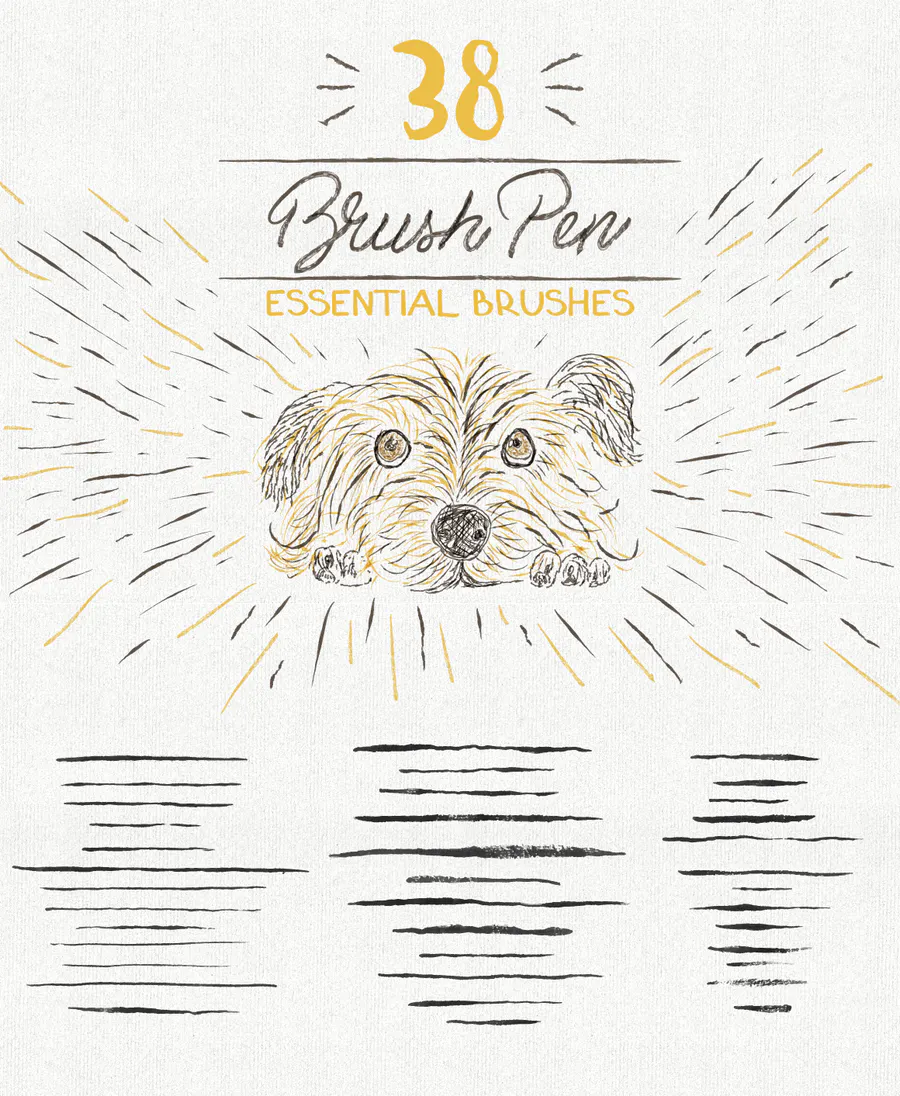 38
Brush Pen
ESSENTIAL BRUSHES